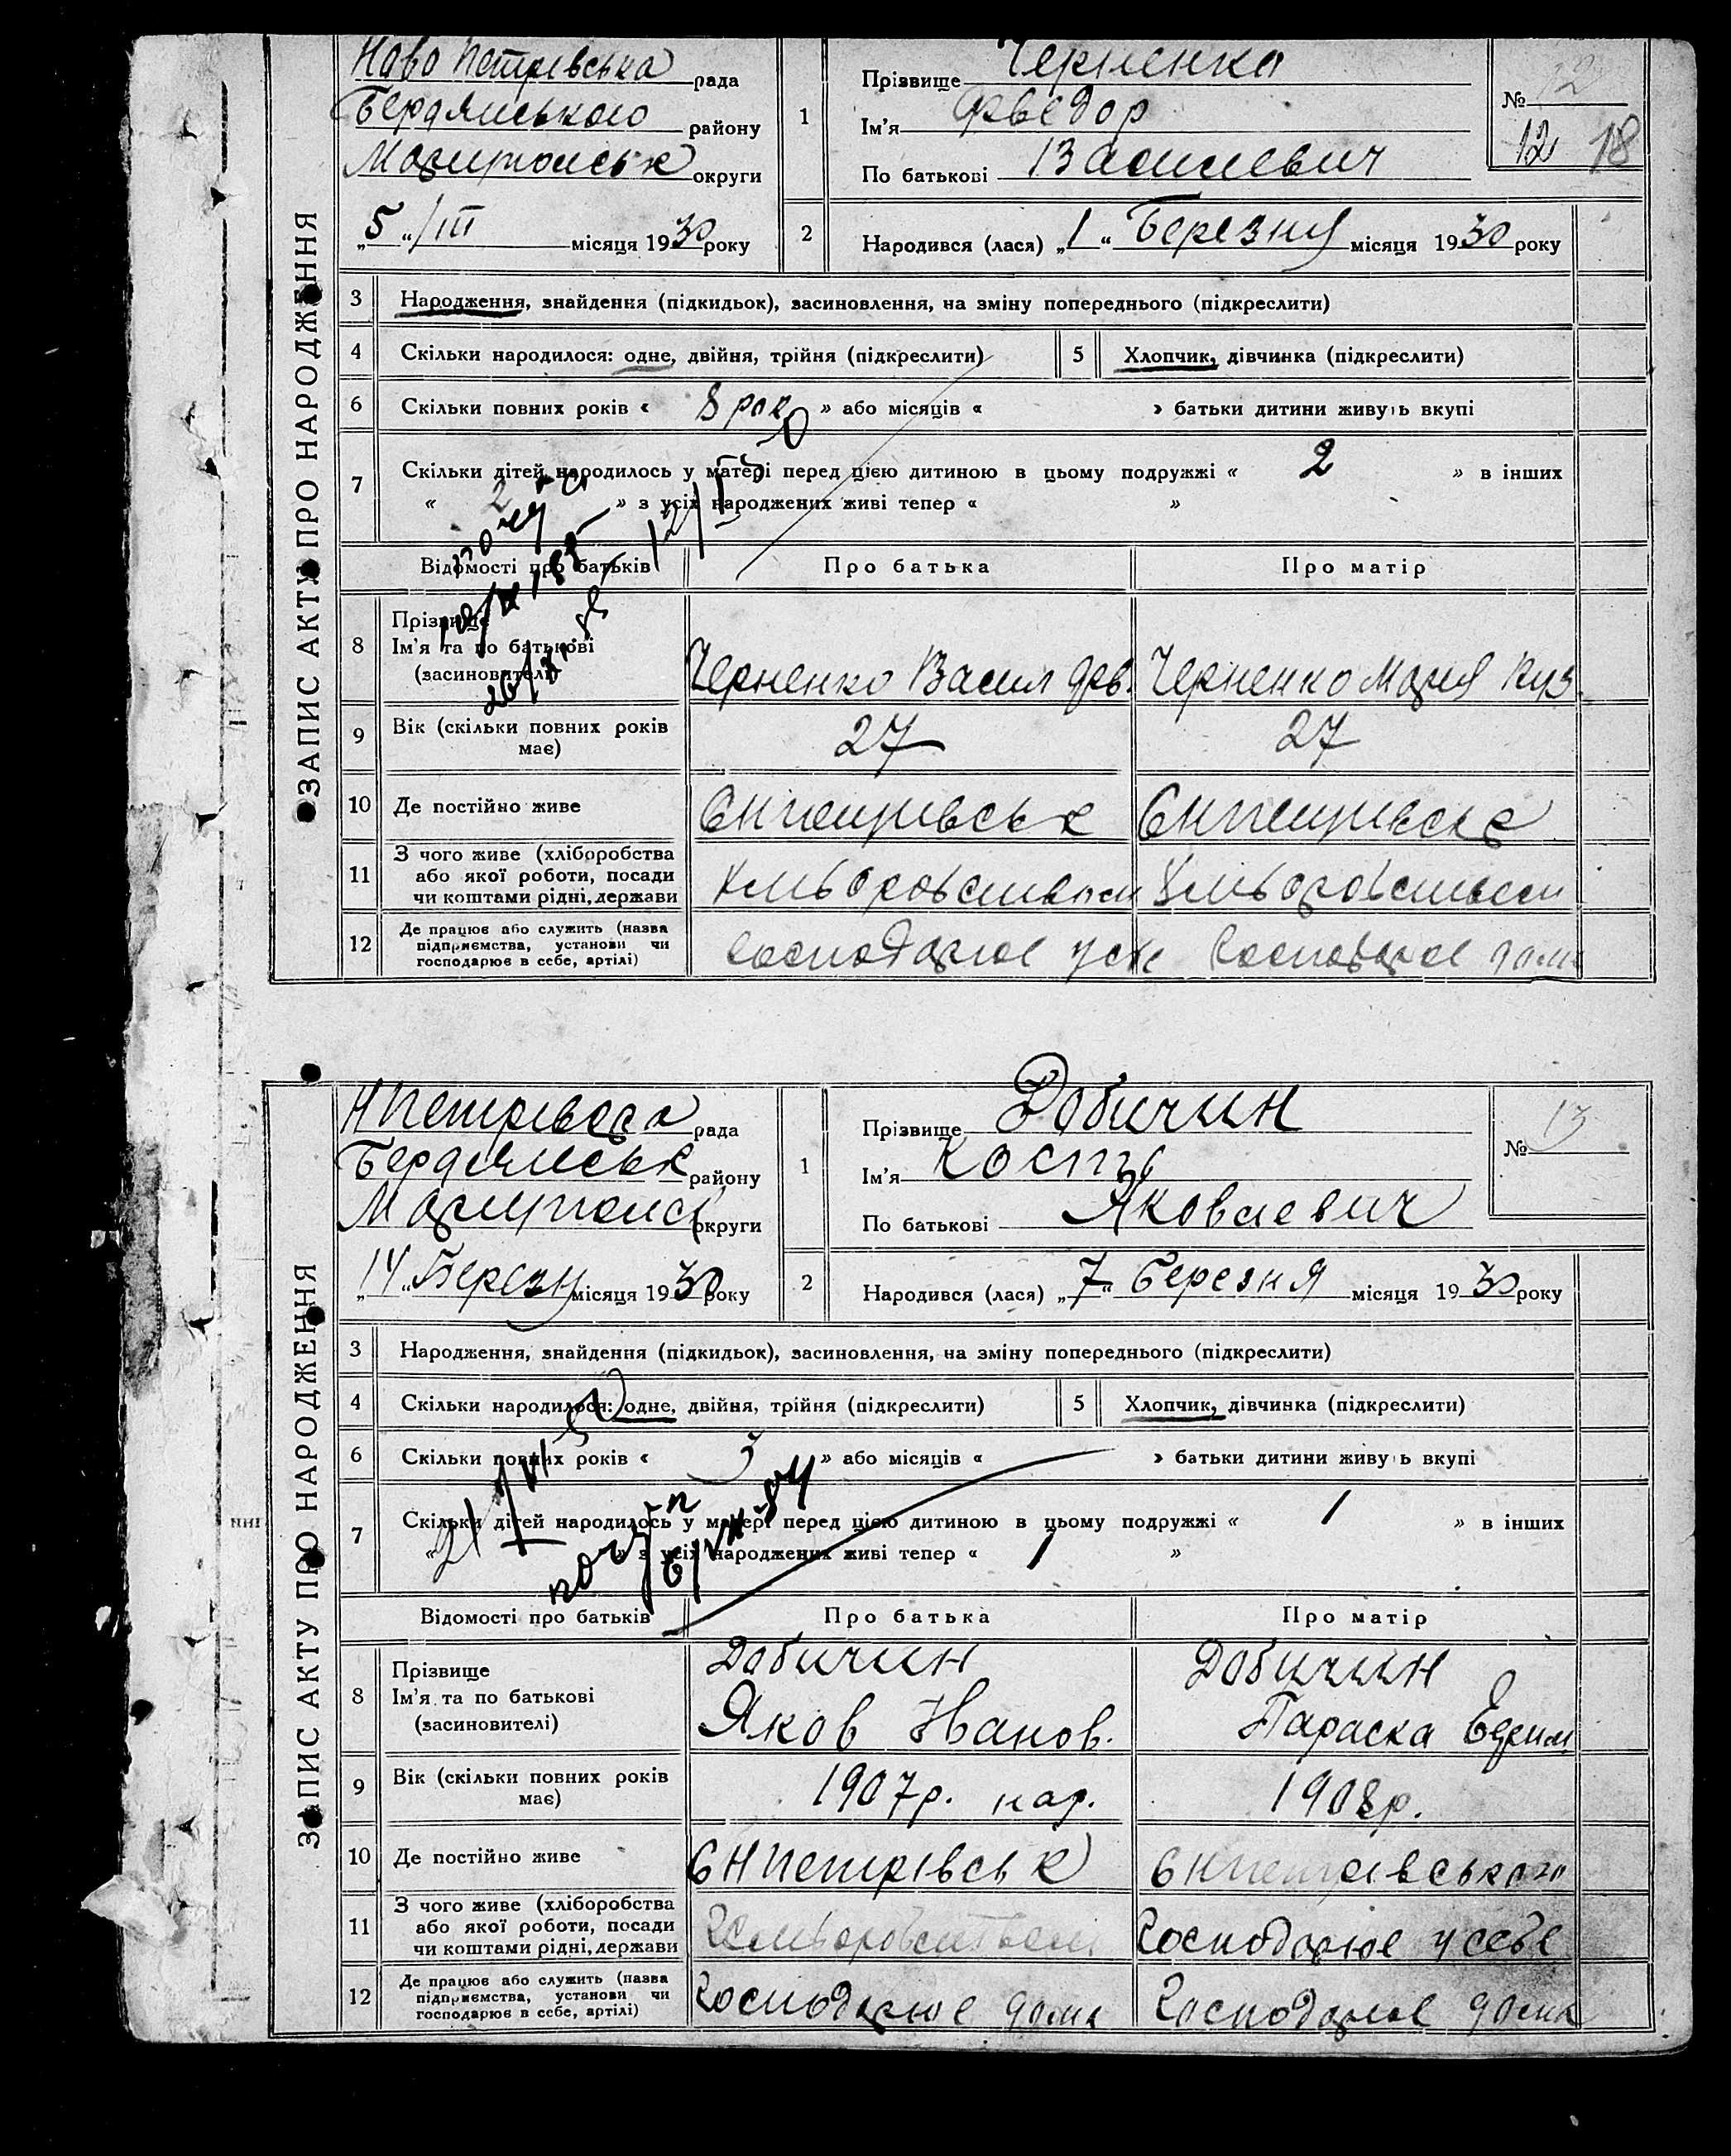 ЗАПИС АКТУ ПРО НАРОДЖЕННЯ
Ново Петрівська рада
Бердянського району
Маріупольськ округи
„5“/III місяця 1930 року
1
Прізвище Черненко
Ім'я Фведор
По батькові Василевич
№ 12
12 18
2
Народився (лася) „1“ Березня місяця 1930 року
3 Народження, знайдення (підкидьок), засиновлення, на зміну попереднього (підкреслити)
4 Скільки народилося: одне, двійня, трійня (підкреслити)
5 Хлопчик, дівчинка (підкреслити)
6 Скільки повних років « 8 рок » або місяців « » батьки дитини живуть вкупі
7 Скільки дітей народилось у матері перед цією дитиною в цьому подружжі « 2 » в інших
« 2 » з усіх народжених живі тепер « »
Відомості про батьків Про батька Про матір
8 Прізвище
Ім'я та по батькові
(засиновителі)
Черненко Васил Фв. Черненко Мария Куз.
9 Вік (скільки повних років
має)
27 27
10 Де постійно живе
11 З чого живе (хліборобства
або якої роботи, посади
чи коштами рідні, держави
12 Де працює або служить (назва
підприємства, установи чи
господарює в себе, артілі)
господарює господарює дома
ЗАПИС АКТУ ПРО НАРОДЖЕННЯ
НПетрівська рада
Бердянськ району
Маріупольс округи
„14“ Березн місяця 1930 року
1
Прізвище Добичин
Ім'я Кость
По батькові Яковлевич
№ 13
2
Народився (лася) „7“ березня місяця 1930 року
3 Народження, знайдення (підкидьок), засиновлення, на зміну попереднього (підкреслити)
4 Скільки народилося: одне, двійня, трійня (підкреслити)
5 Хлопчик, дівчинка (підкреслити)
6 Скільки повних років « 3 » або місяців « » батьки дитини живуть вкупі
7 Скільки дітей народилось у матері перед цією дитиною в цьому подружжі « 1 » в інших
« » з усіх народжених живі тепер « 1 »
Відомості про батьків Про батька Про матір
8 Прізвище
Ім'я та по батькові
(засиновителі)
Добичин Добичин
Яков Іванов. Параска Ефим
9 Вік (скільки повних років
має)
1907р. нар. 1908р.
10 Де постійно живе
с НПетрівськ с НПетрівського
11 З чого живе (хліборобства
або якої роботи, посади
чи коштами рідні, держави
господарює у себе
12 Де працює або служить (назва
підприємства, установи чи
господарює в себе, артілі)
господарює дома господарює дома